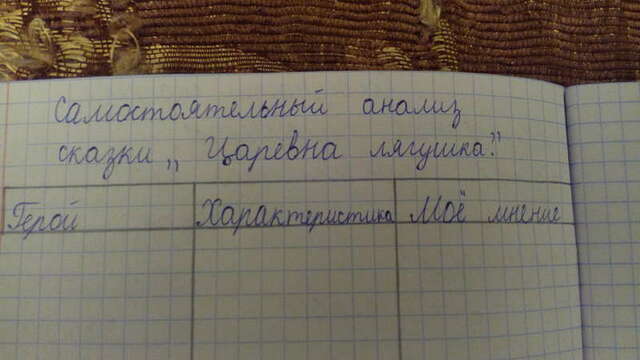 Самостоятельный анализ
сказки „ Царевна лягушка."
Герой Характеристика Моё мнение